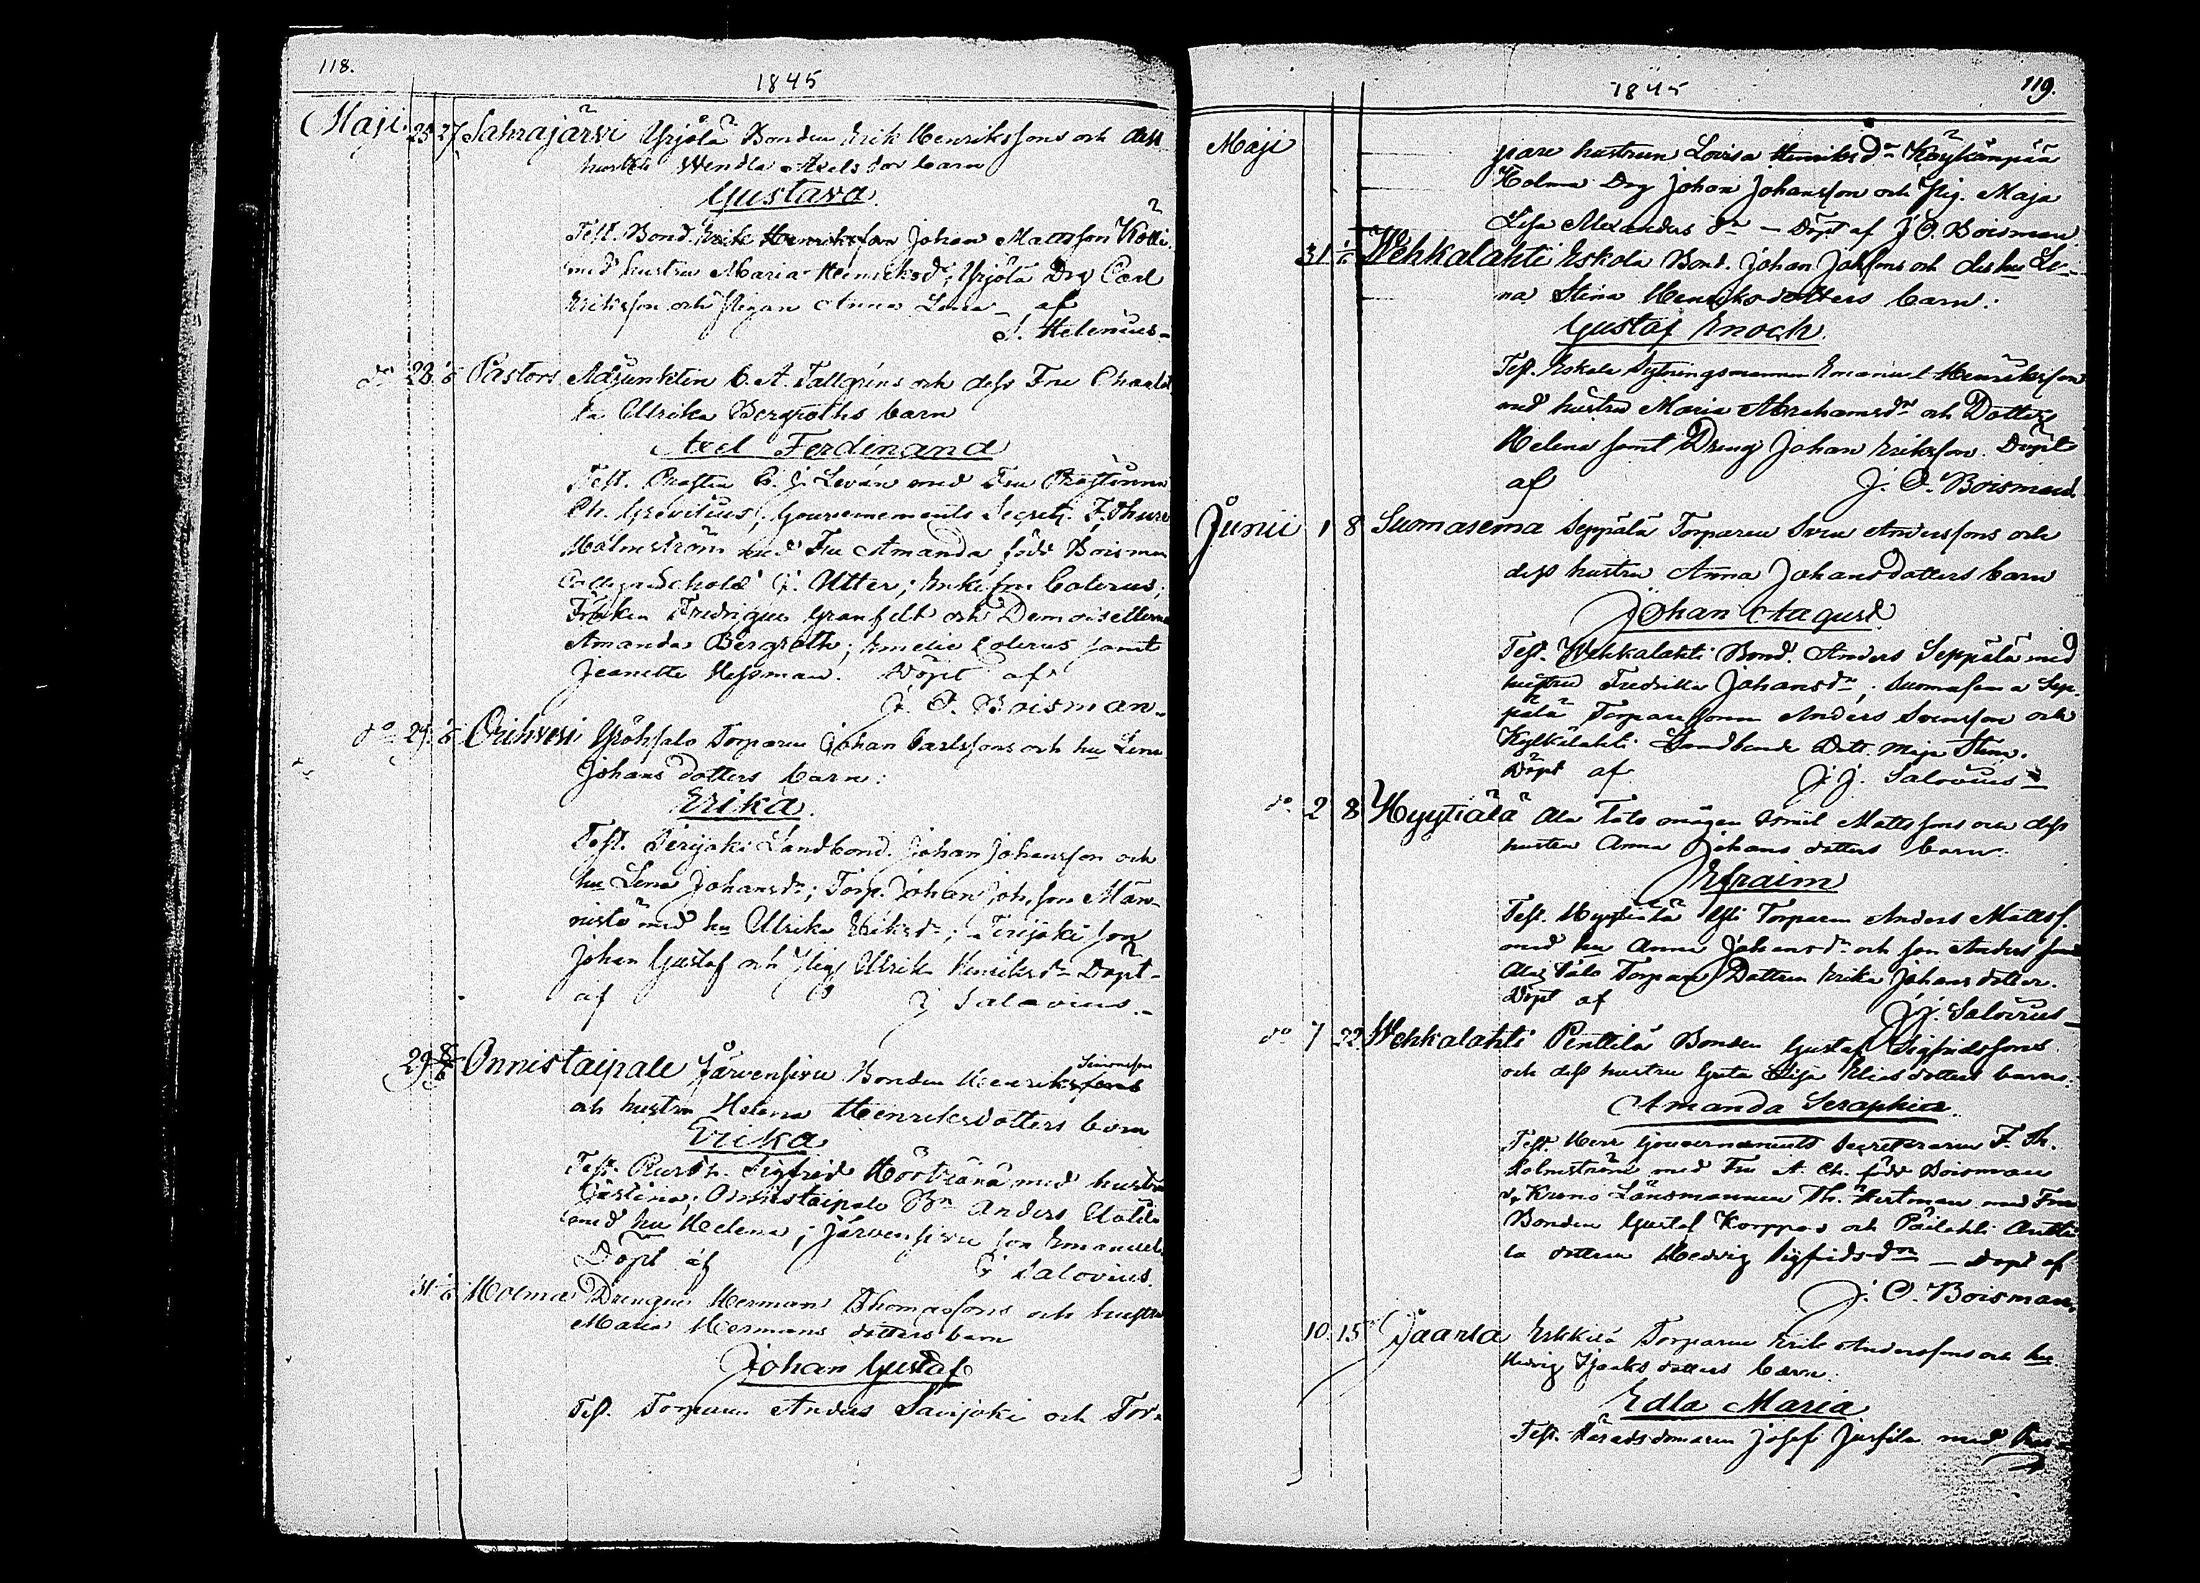 118.
1845
Maji 25 27 Sahrajärvi Yrjölä Bonden Erik Henrikssons och dess
hustru Wendla Axelsdor barn
Gustava.
Test. Bond. Erik Henriksson Johan Mattsson Kölli
med hustru Maria Henriksdr, Yrjölä Drg Carl
Eriksson och Pigan Anna Lena – af
J. Helenius –
do 28 Pastors Adjunkten C. A. Tallgréns och dess Fru Charlot
ta Ulrika Bergroths barn
Axel Ferdinand
Test. Prosten C. J. Levân med Fru Prostinnan
Ch. Grevilius; Gouvernements Secret. F. Thure
Malmström med Fru Amanda född Boisman
Collega Schola J. Utter; Enkefru Colerus;
Fröken Fredrique Granfelt och Demoisellerne
Amanda Bergroth; Emelie Colerus samt
Jeanette Hessman. Döpt af
J. O. Boisman.
do 29 Orihvesi Yröhsalo Torparen Johan Carlssons och hu Lena
Johansdotters barn:
Erika.
Test. Terijoki Landbond. Johan Johansson och
hu Lena Johansdr; Torp. Johan Johsson Män-
nistö med hu Ulrika Eriksdr; Terijoki son
Johan Gustaf och Pig Ulrika Henriksdr Döpt
af J Salovius.
29 Onnistaipale Järvensivu Bonden Henrik Simonsson
och hustru Helena Henriksdotters barn
Erika
Test. Rusth. Sigfrid Hörtsänä med hustru
Cristina; Onnistaipale Bn Anders Uotila
med hu Helena; Järvensivu son Emanuel.
Döpt af J Salovius.
31 Holma Drengen Herman Thomassons och hustru
Maria Hermans dotters barn
Johan Gustaf
Test. Torparen Anders Savijoki och Tor-
1845
119.
Maji
pare hustrun Lovisa Henriksdr Köykänpää
Holma Drg Johan Johansson och Pig. Maja
Lisa Alexanders dr – Döpt af J O. Boisman
31 Wehkalahti Eskola Bond. Johan Johssons och dess hu Le-
na Stina Henriksdotters barn:
Gustaf Enoch.
Test. Eskola Sytningsmannen Emanuel Henriksson
med hustru Maria Abrahamsdr och Dotter
Helena samt Dreng Johan Eriksson. Döpt
af J. O. Boisman
Junii 1 8 Suomasema Seppälä Torparen Sven Anderssons och
dess hustru Anna Johansdotters barn
Johan August
Test. Wehkalahti Bond. Anders Seppälä med
hustru Fredrika Johansdr; Suomasema Sep-
pälä Torpare sonen Anders Svensson och
Kylkälahti Landbonde Dott. Maja Stina.
Döpt af J. J. Salovius
do 2 8 Hyytiälä Ala Talo mågen Emil Mattssons och dess
hustru Anna Johans dotters barn:
Efraim
Test. Hyytiälä Yli Torparen Anders Mattss.
med hu Anna Johansdr och son Anders samt
Ala Talo Torpare Dottren Erika Johansdotter.
Döpt af J. J. Salovius –
do 7 22 Wehkalahti Penttilä Bonden Gustaf Sigfridssons
och dess hustru Greta Lisa Eliasdotters barn:
Amanda Seraphia.
Test. Herr Gouvernements Secreteraren F. Th.
Malmström med Fru A. Ch. född Boisman
Krono Länsmannen Th. Hertman med Fru
Bonden Gustaf Korppas och Päilahti Antti
la dottren Hedvig Sigfridsdr – Döpt af
J. O. Boisman.
10. 15 Jaarla Erkkilä Torparen Erik Anderssons och hu
Hedvig Isaaks dotters barn:
Edla Maria
Test. Häradsdomaren Josef Jussila med hu-